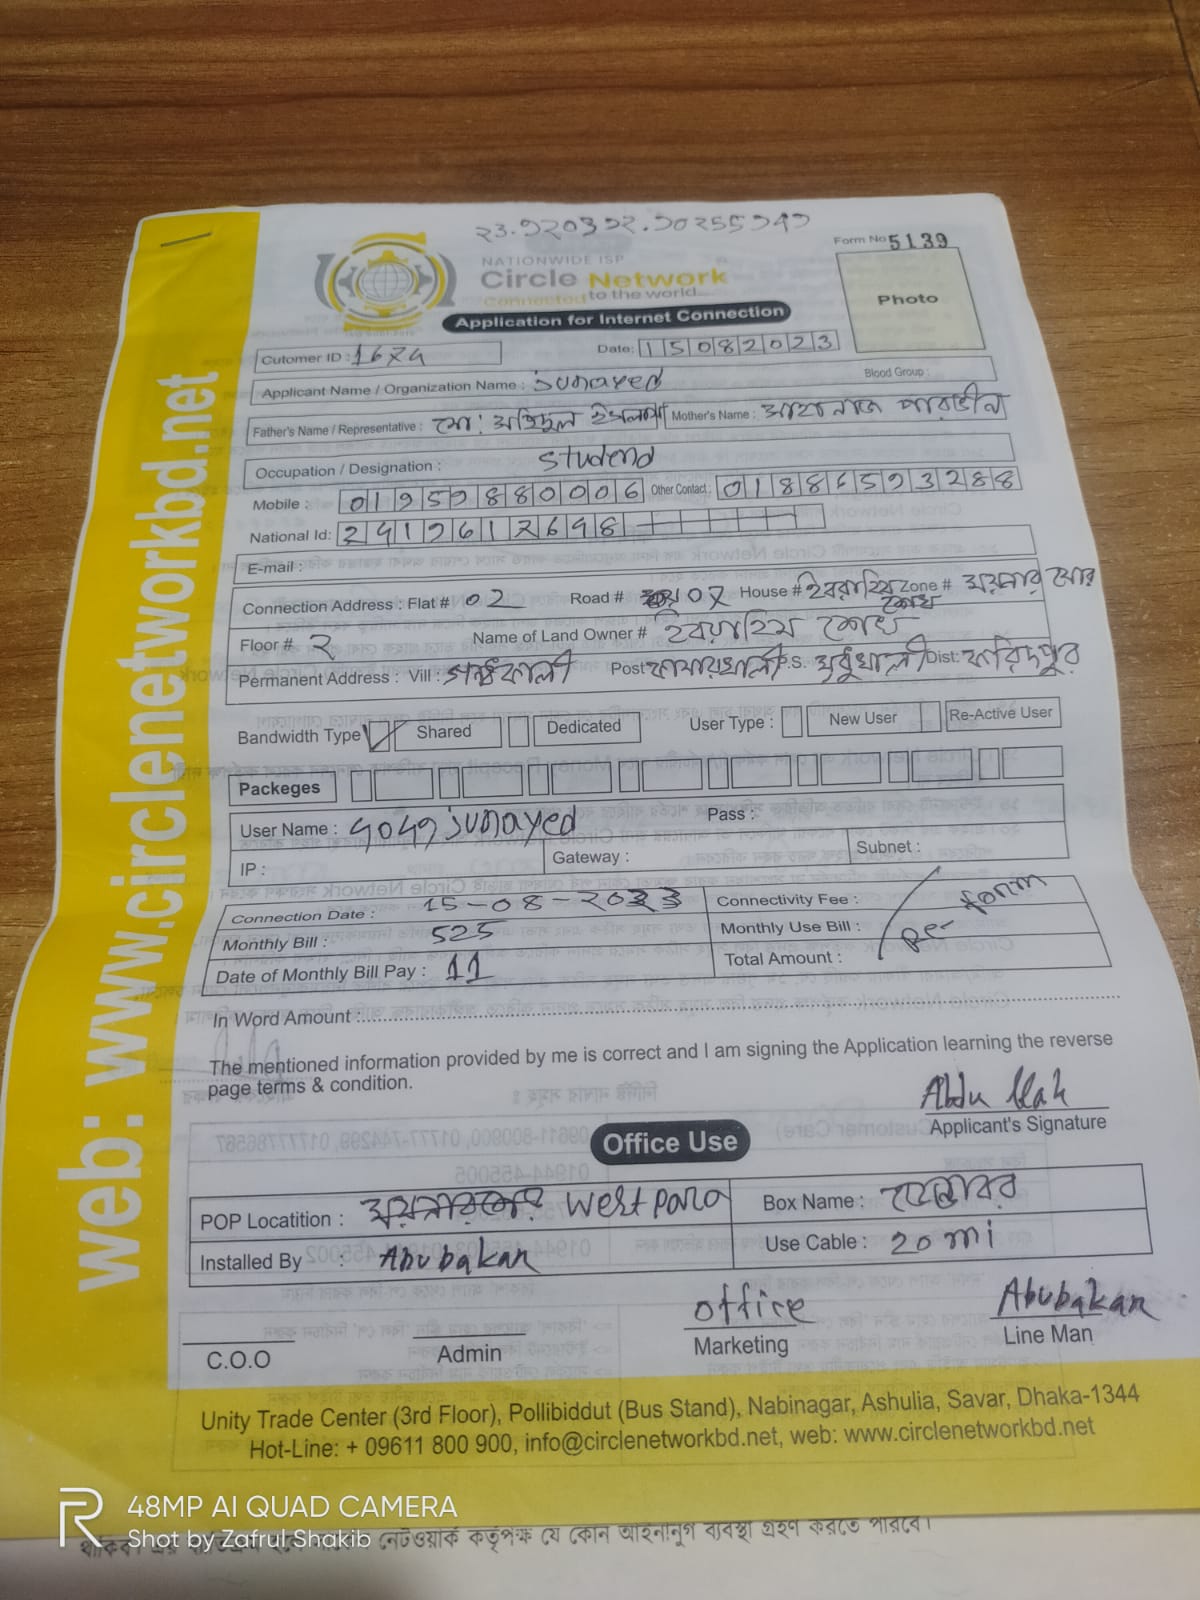 Form No 5139
NATIONWIDE ISP
Circle Network
Connected to the world...
Application for Internet Connection
Photo
Cutomer ID : 1674
Date: 15082023
Applicant Name / Organization Name : Junayed
Blood Group :
Father's Name / Representative : মো: অহিদুল ইসলাম Mother's Name : শাহানাজ পারভীন
Occupation / Designation : Studend
Mobile : 01959880006 Other Contact : 01886593288
National Id: 2419612698
E-mail :
Connection Address : Flat # 02 Road # 02 House # ইবরাহিম শেখ Zone #
Floor # 2 Name of Land Owner # ইবরাহিম শেখ
Permanent Address : Vill : Post: কামারখালী P.S. মধুখালী Dist: ফরিদপুর
Bandwidth Type Shared Dedicated User Type : New User Re-Active User
Packeges
User Name : Junayed Pass :
IP : Gateway : Subnet :
Connection Date : 15-08-2023 Connectivity Fee :
Monthly Bill : 525 Monthly Use Bill : per form
Date of Monthly Bill Pay : 11 Total Amount :
In Word Amount :
The mentioned information provided by me is correct and I am signing the Application learning the reverse
page terms & condition.
Abdu llah
Applicant's Signature
Office Use
POP Locatition : West para Box Name :
Installed By : Abubakar Use Cable : 20 mi
office Abubakar
C.O.O Admin Marketing Line Man
Unity Trade Center (3rd Floor), Pollibiddut (Bus Stand), Nabinagar, Ashulia, Savar, Dhaka-1344
Hot-Line: + 09611 800 900, info@circlenetworkbd.net, web: www.circlenetworkbd.net
web: www.circlenetworkbd.net
নেটওয়ার্ক কর্তৃপক্ষ যে কোন আইনানুগ ব্যবস্থা গ্রহণ করতে পারবে।
48MP AI QUAD CAMERA
Shot by Zafrul Shakib